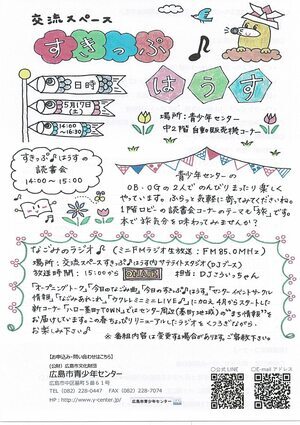 交流スペース
すきっぷ
はうす
日時
5月17日
(土)
14:00
～16:30
場所：青少年センター
中2階 自動販売機コーナー
すきっぷ♪はうすの
読書会
14:00～15:00
青少年センターの
OB・OGの2人でのんびりまったり楽しく
やっています。ふらっと気軽に寄ってみてくださいね。
1階ロビーの読書会コーナーのテーマも「旅」です。
本で旅気分を味わってみませんか？
なごみのラジオ♪（ミニFMラジオ生放送：FM85.0MHz）
場所：交流スペースすきっぷ♪はうす内サテライトスタジオ（DJブース）
放送時間：15:00から
担当：DJこういっちゃん
「オープニングトーク」「今日のなごみ曲」「今日のすきっぷ♪はうす」「センターイベントサークル
情報」「なごみあれこれ」「ウクレレミニミニLIVE♪」に加え4月からスタートした
新コーナー「ハロー基町TOWN」ではセンター周辺（基町地域）の“まち情報”を
お届けしています。この春ちょびリニューアルしたラジオをくつろぎながら
お楽しみ下さい♪
※番組内容は変更する場合があります。ご容赦下さい。
【お申込み・問い合わせはこちら】
（公財）広島市文化財団
広島市青少年センター
広島市中区基町5番61号
TEL（082）228-0447 FAX（082）228-7074
HP：http://www.y-center.jp/
広島市青少年センター
◎公式LINE
◎E-mail アドレス